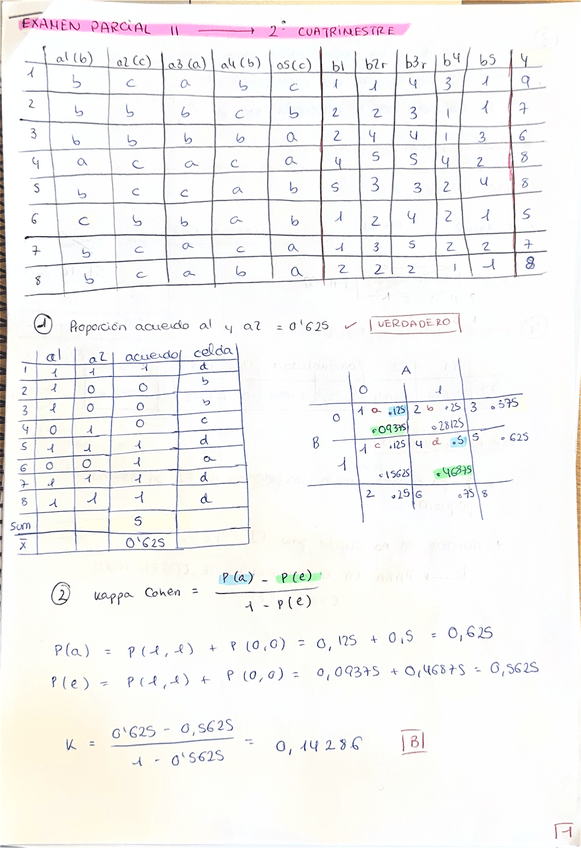 EXAMEN PARCIAL II → 2º CUATRIMESTRE
a1(b) a2(c) a3(a) a4(b) a5(c) b1 b2r b3r b4 b5 Y
1 b c a b c 1 1 4 3 1 9
2 b b b c b 2 2 3 1 1 7
3 b b b b a 2 4 4 1 3 6
4 a c a c a 4 5 5 4 2 8
5 b c c a b 5 3 3 2 4 8
6 c b b a b 1 2 4 2 1 5
7 b c a c a 1 3 5 2 2 7
8 b c a b a 2 2 2 1 1 8
① Proporción acuerdo a1 y a2 = 0'625 ✓ VERDADERO
a1 a2 acuerdo celda
1 1 1 1 d
2 1 0 0 b
3 1 0 0 b
4 0 1 0 c
5 1 1 1 d
6 0 0 1 a
7 1 1 1 d
8 1 1 1 d
Sum 5
x̄ 0'625
A
0 1
0 1 a .125 2 b .25 3 .375
.09375 .28125
B
1 1 c .125 4 d .5 5 .625
.15625 .46875
2 .25 6 .75 8
② Kappa Cohen = P(a) - P(e)
1 - P(e)
P(a) = P(1,1) + P(0,0) = 0,125 + 0,5 = 0,625
P(e) = P(1,1) + P(0,0) = 0,09375 + 0,46875 = 0,5625
K = 0'625 - 0,5625 = 0,14286 B
1 - 0'5625
1